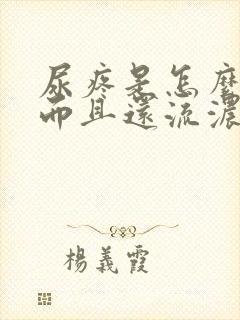 尿疼是怎麼
而且還流濃
楊義霞